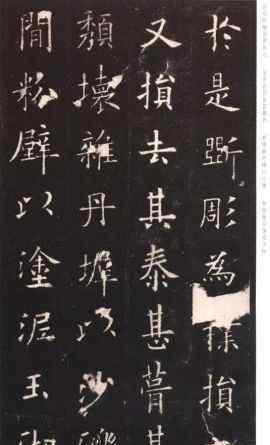 於是斲彫為樸損
又損去其泰甚葺其
頹壞雜丹墀以沙礫
閒粉壁以塗泥玉砌